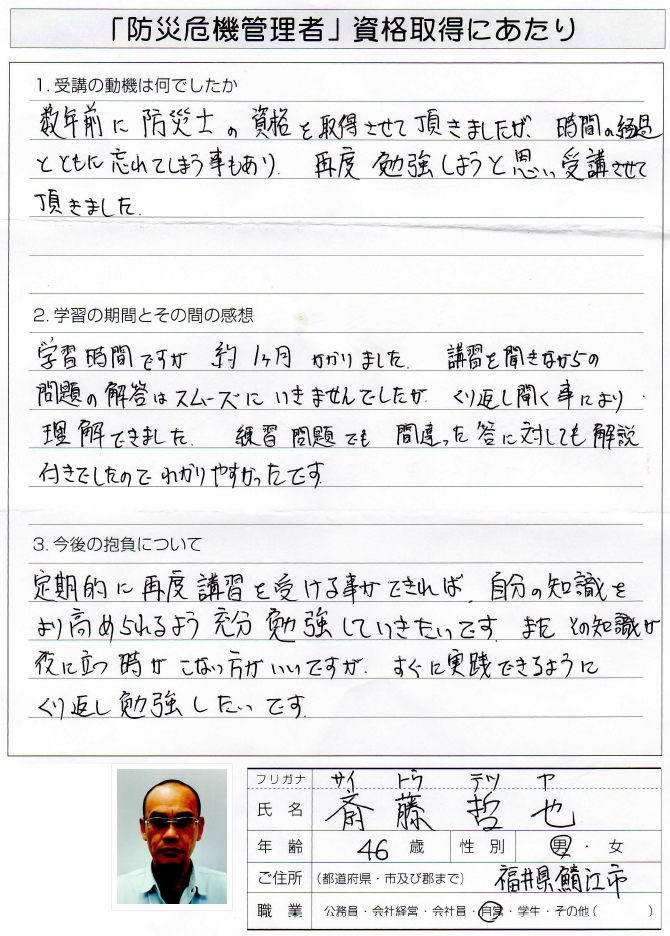 「防災危機管理者」資格取得にあたり
1. 受講の動機は何でしたか
数年前に 防災士の 資格を取得させて頂きましたが、時間の経過
とともに忘れてしまう事もあり、再度 勉強しようと思い受講させて
頂きました。
2. 学習の期間とその間の感想
学習時間ですが 約1ヶ月 かかりました。 講習を聞きながらの
問題の解答はスムーズに いきませんでしたが、くり返し聞く事により
理解できました。 練習問題でも 間違った答に対しても解説
付きでしたので わかりやすかったです。
3. 今後の抱負について
定期的に再度講習を受ける事ができれば、自分の知識を
より高められるよう 充分 勉強していきたいです。また その知識が
役に立つ時が こない方がいいですが、すぐに実践できるように
くり返し勉強したいです。
フリガナ サイ トウ テツ ヤ
氏名 斎藤 哲也
年齢 46 歳 性別 男・女
ご住所 (都道府県・市及び郡まで) 福井県鯖江市
職業 公務員・会社経営・会社員・自営・学生・その他( )